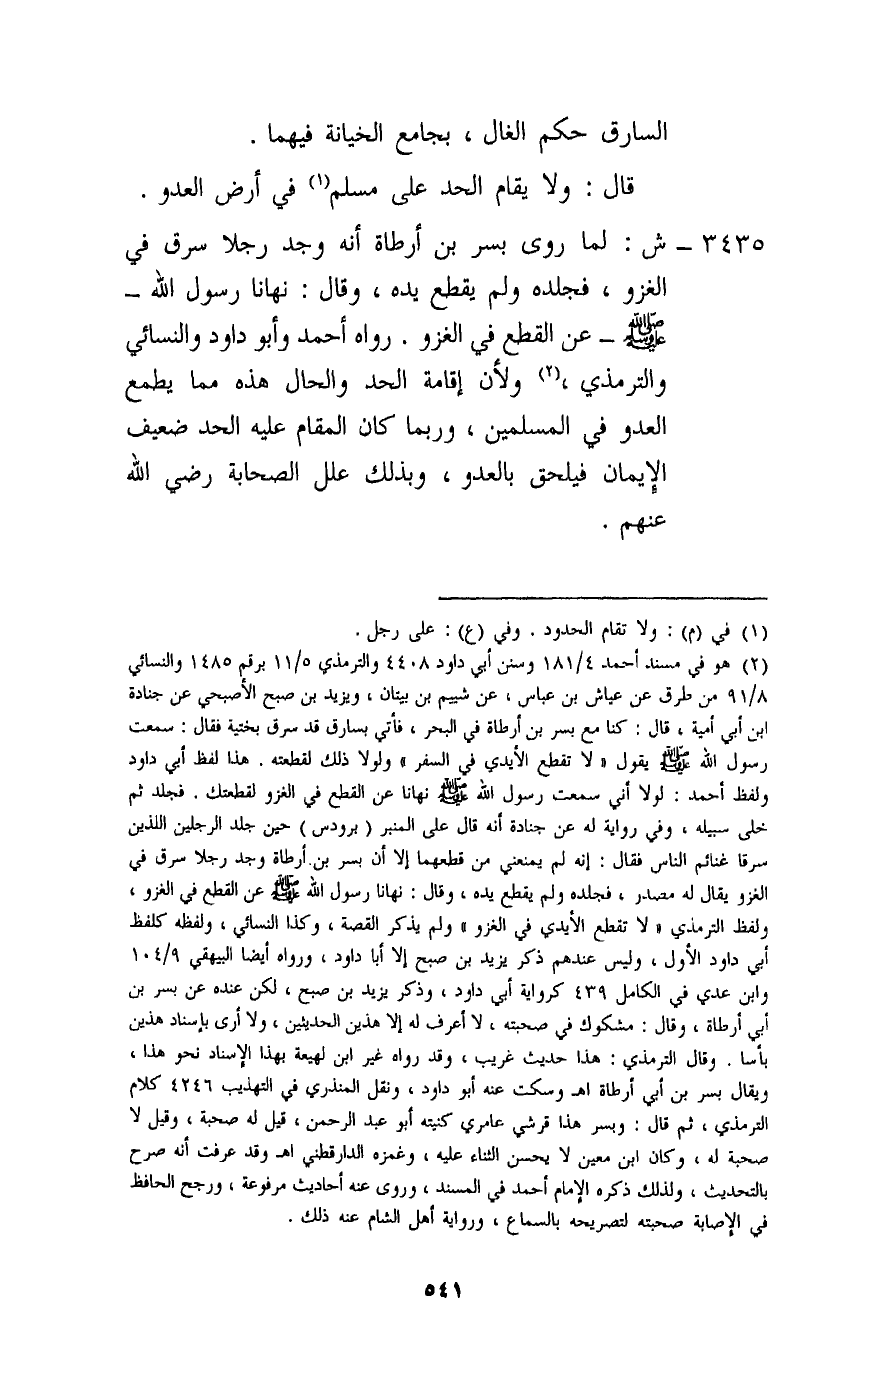 السارق حكم الغال ، بجامع الخيانة فيهما .
قال : ولا يقام الحد على مسلم(١) في أرض العدو .
٣٤٣٥ ــ ش : لما روى بسر بن أرطاة أنه وجد رجلا سرق في
الغزو ، فجلده ولم يقطع يده ، وقال : نهانا رسول الله ــ
ﷺ ــ عن القطع في الغزو . رواه أحمد وأبو داود والنسائي
والترمذي ،(٢) ولأن إقامة الحد والحال هذه مما يطمع
العدو في المسلمين ، وربما كان المقام عليه الحد ضعيف
الإيمان فيلحق بالعدو ، وبذلك علل الصحابة رضي الله
عنهم .
(١) في (م) : ولا تقام الحدود . وفي (ع) : على رجل .
(٢) هو في مسند أحمد ١٨١/٤ وسنن أبي داود ٤٤٠٨ والترمذي ١١/٥ برقم ١٤٨٥ والنسائي
٩١/٨ من طرق عن عياش بن عباس ، عن شييم بن بيتان ، ويزيد بن صبح الأصبحي عن جنادة
ابن أبي أمية ، قال : كنا مع بسر بن أرطاة في البحر ، فأتي بسارق قد سرق بختية فقال : سمعت
رسول الله ﷺ يقول « لا تقطع الأيدي في السفر » ولولا ذلك لقطعته . هذا لفظ أبي داود
ولفظ أحمد : لولا أني سمعت رسول الله ﷺ نهانا عن القطع في الغزو لقطعتك . فجلد ثم
خلى سبيله ، وفي رواية له عن جنادة أنه قال على المنبر ( برودس ) حين جلد الرجلين اللذين
سرقا غنائم الناس فقال : إنه لم يمنعني من قطعهما إلا أن بسر بن أرطاة وجد رجلا سرق في
الغزو يقال له مصدر ، فجلده ولم يقطع يده ، وقال : نهانا رسول الله ﷺ عن القطع في الغزو ،
ولفظ الترمذي « لا تقطع الأيدي في الغزو » ولم يذكر القصة ، وكذا النسائي ، ولفظه كلفظ
أبي داود الأول ، وليس عندهم ذكر يزيد بن صبح إلا أبا داود ، ورواه أيضا البيهقي ١٠٤/٩
وابن عدي في الكامل ٤٣٩ كرواية أبي داود ، وذكر يزيد بن صبح ، لكن عنده عن بسر بن
أبي أرطاة ، وقال : مشكوك في صحبته ، لا أعرف له إلا هذين الحديثين ، ولا أرى بإسناد هذين
بأسا . وقال الترمذي : هذا حديث غريب ، وقد رواه غير ابن لهيعة بهذا الإسناد نحو هذا ،
ويقال بسر بن أبي أرطاة اهـ وسكت عنه أبو داود ، ونقل المنذري في التهذيب ٤٢٤٦ كلام
الترمذي ، ثم قال : وبسر هذا قرشي عامري كنيته أبو عبد الرحمن ، قيل له صحبة ، وقيل لا
صحبة له ، وكان ابن معين لا يحسن الثناء عليه ، وغمزه الدارقطني اهـ وقد عرفت أنه صرح
بالتحديث ، ولذلك ذكره الإمام أحمد في المسند ، وروى عنه أحاديث مرفوعة ، ورجح الحافظ
في الإصابة صحبته لتصريحه بالسماع ، ورواية أهل الشام عنه ذلك .
٥٤١